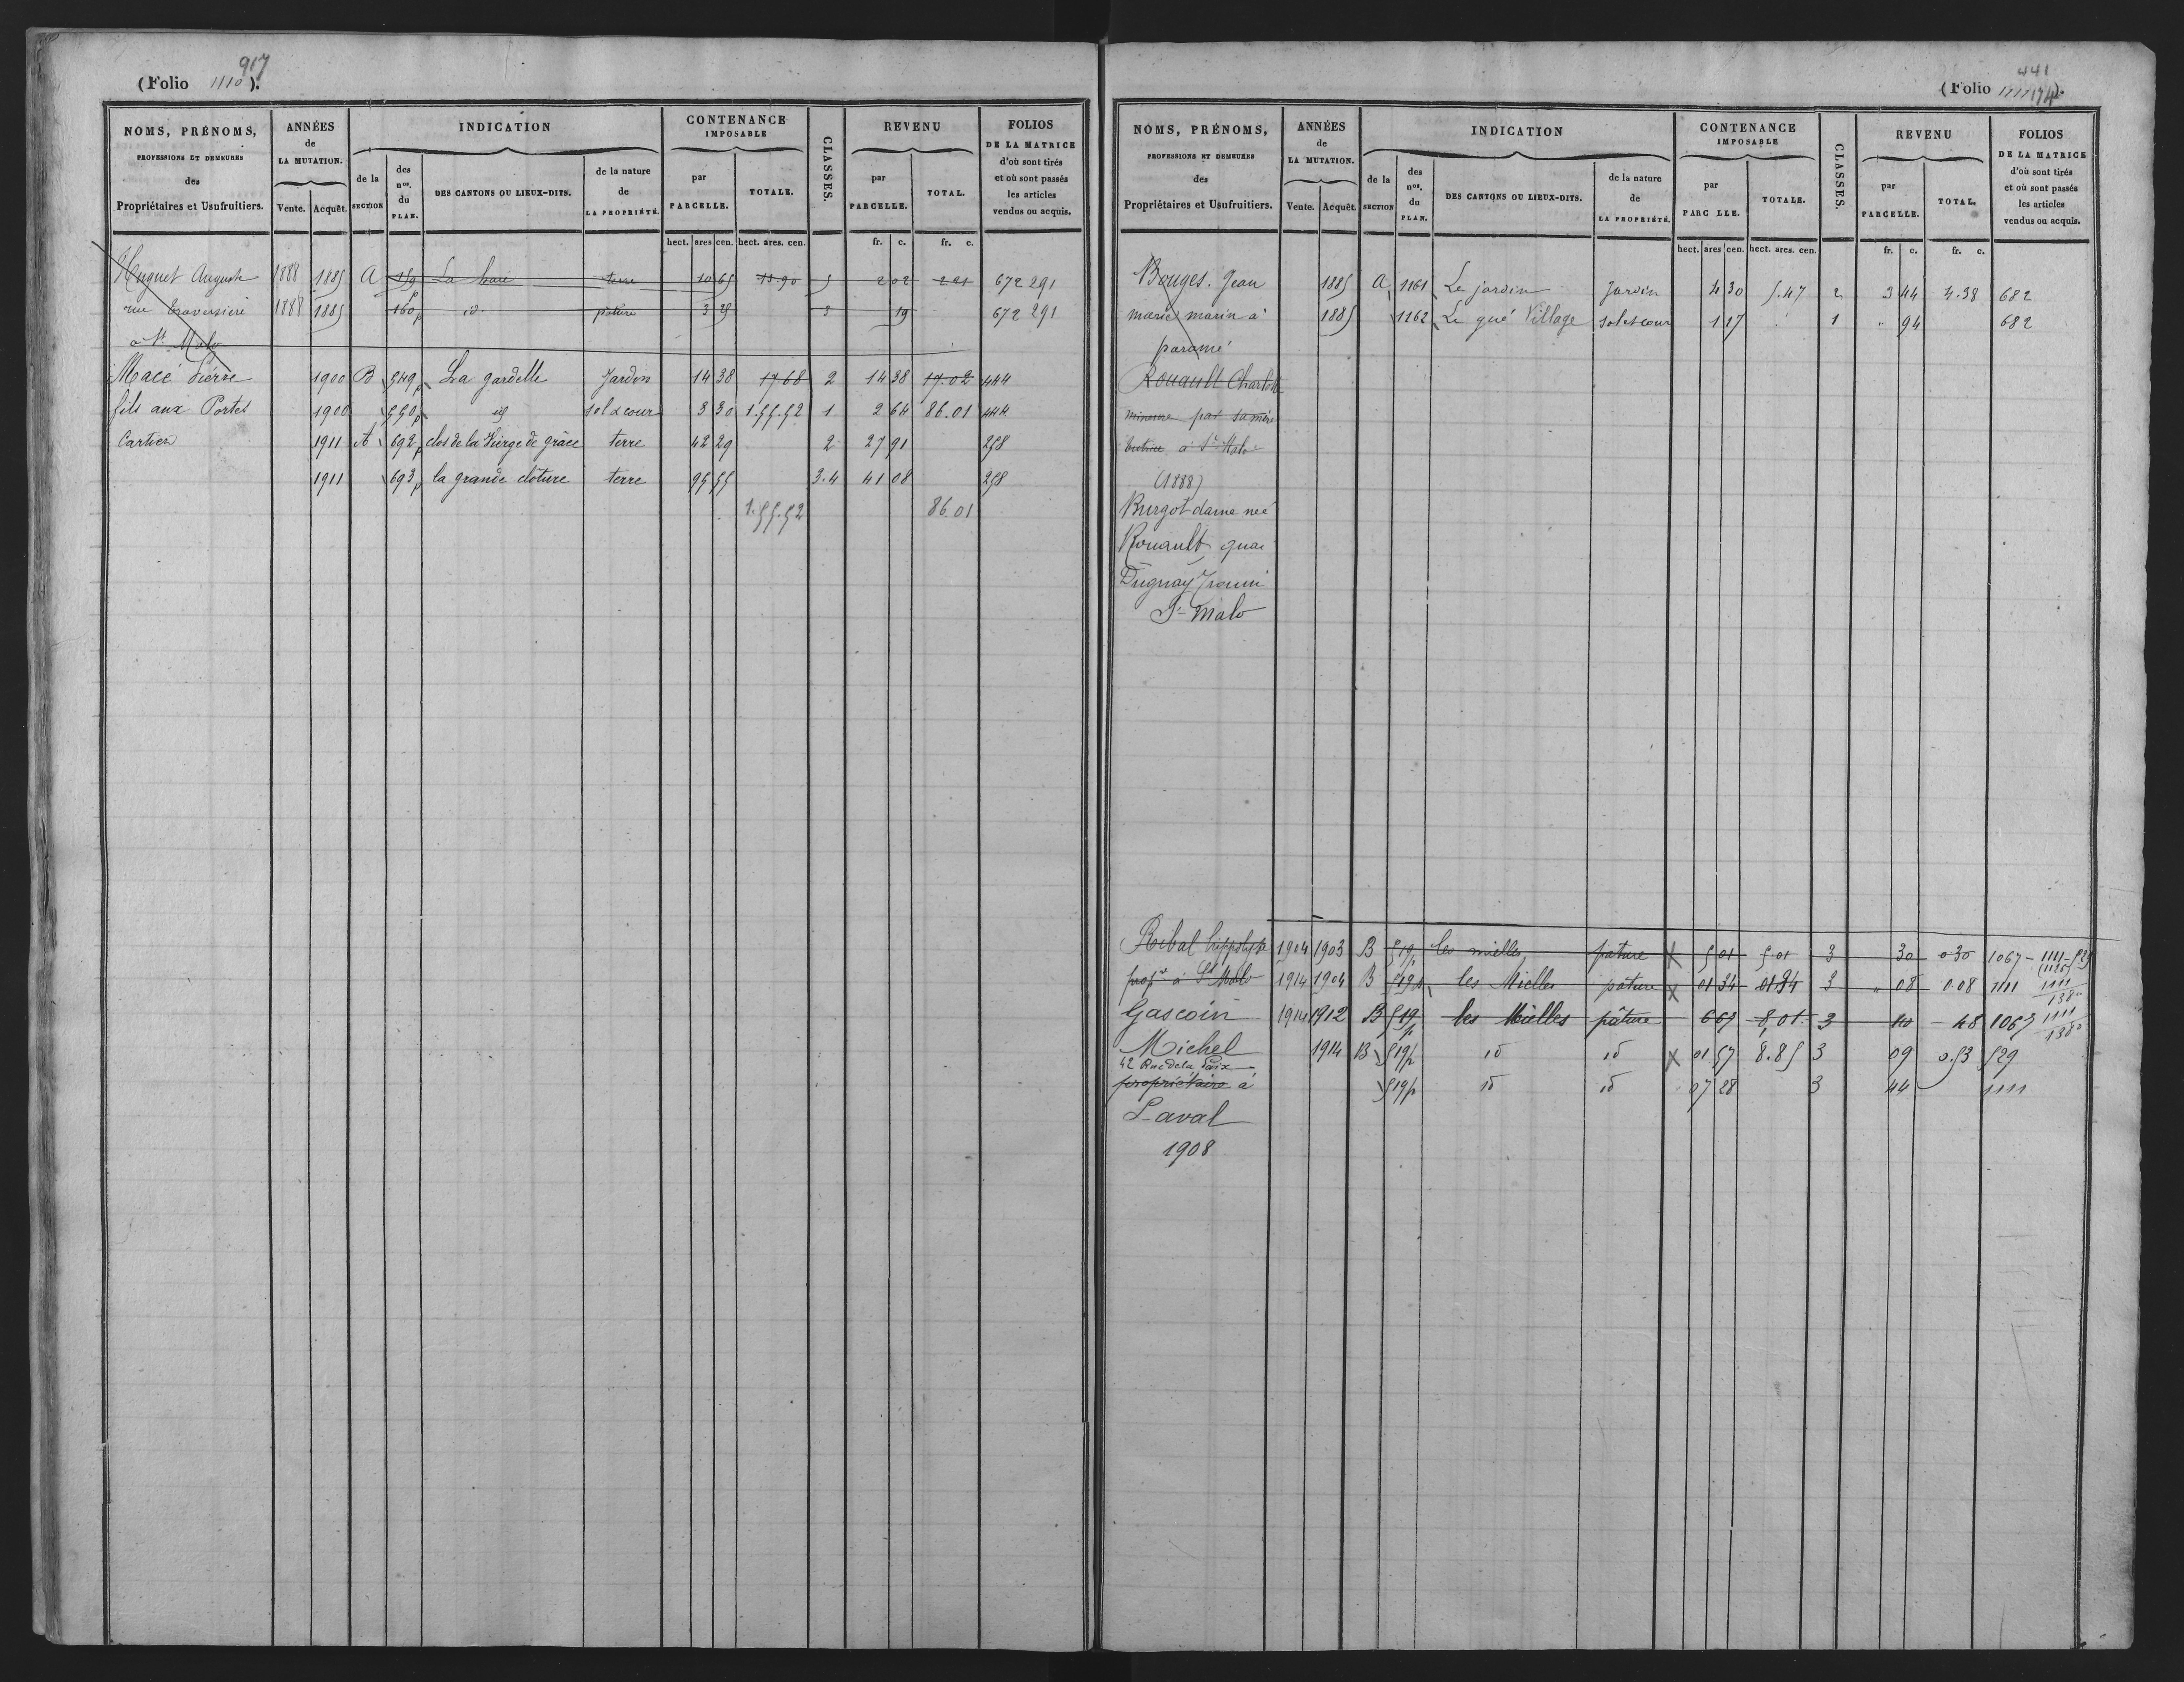 917
(Folio 1110).
NOMS, PRÉNOMS,
PROFESSIONS ET DEMEURES
des
Propriétaires et Usufruitiers.
ANNÉES
de
LA MUTATION.
Vente. Acquêt.
INDICATION
de la
SECTION
des
nos.
du
PLAN.
DES CANTONS OU LIEUX-DITS.
de la nature
de
LA PROPRIÉTÉ.
CONTENANCE
IMPOSABLE
par
PARCELLE.
TOTALE.
CLASSES.
REVENU
par
PARCELLE.
TOTAL.
FOLIOS
DE LA MATRICE
d'où sont tirés
et où sont passés
les articles
vendus ou acquis.
hect. ares cen. hect. ares. cen. fr. c. fr. c.
Huguet Auguste 1888 1885 A 159 La haie terre 10 65 13.90 5 2 02 2 21 672 291
rue Traversière 1888 1885 160p id. pature 3 25 3 19 672 291
à St Malo
Macé Pierre 1900 B 549p La gardelle Jardin 14 38 17 68 2 14 38 17.02 444
fils aux Portes 1900 550p id sol & cour 3 30 1.55.52 1 2 64 86.01 444
Cartier 1911 A 692p clos de la Vierge de grâce terre 42 29 2 27 91 258
1911 693p la grande clôture terre 95 55 3.4 41 08 258
1.55.52 86.01
441
(Folio 1111 174).
NOMS, PRÉNOMS,
PROFESSIONS ET DEMEURES
des
Propriétaires et Usufruitiers.
ANNÉES
de
LA MUTATION.
Vente. Acquêt.
INDICATION
de la
SECTION
des
nos.
du
PLAN.
DES CANTONS OU LIEUX-DITS.
de la nature
de
LA PROPRIÉTÉ.
CONTENANCE
IMPOSABLE
par
PARC LLE.
TOTALE.
CLASSES.
REVENU
par
PARCELLE.
TOTAL.
FOLIOS
DE LA MATRICE
d'où sont tirés
et où sont passés
les articles
vendus ou acquis.
hect. ares cen. hect. ares. cen. fr. c. fr. c.
Bouges. Jean 1885 A 1161 Le jardin Jardin 4 30 5.47 2 3 44 4.38 682
marie marin à 1885 1162 Le gué Village sol et cour 1 17 1 " 94 682
paramé
Rouault Charlotte
mineure par sa mère
tutrice à St Malo
(1888)
Burgot dame née
Rouault quai
Duguay Trouin
St-Malo
Ribal hippolyte 1904 1903 B 519p les mielles pature X 5 01 5.01 3 30 0 30 1067 - 1111-529
(1125)
propre à St Malo 1914 1904 B 519p les Mielles pature X 01 34 01 34 3 " 08 0.08 1111 1111
1380
Gascoin 1914 1912 B 519p les Mielles pâture 6 67 8,01 3 40 48 1067 1111
1380
Michel 1914 B 519p id id X 01 57 8.85 3 09 0.53 529
42 Rue de la Paix
propriétaire à 519p id id 07 28 3 44 1111
Laval
1908